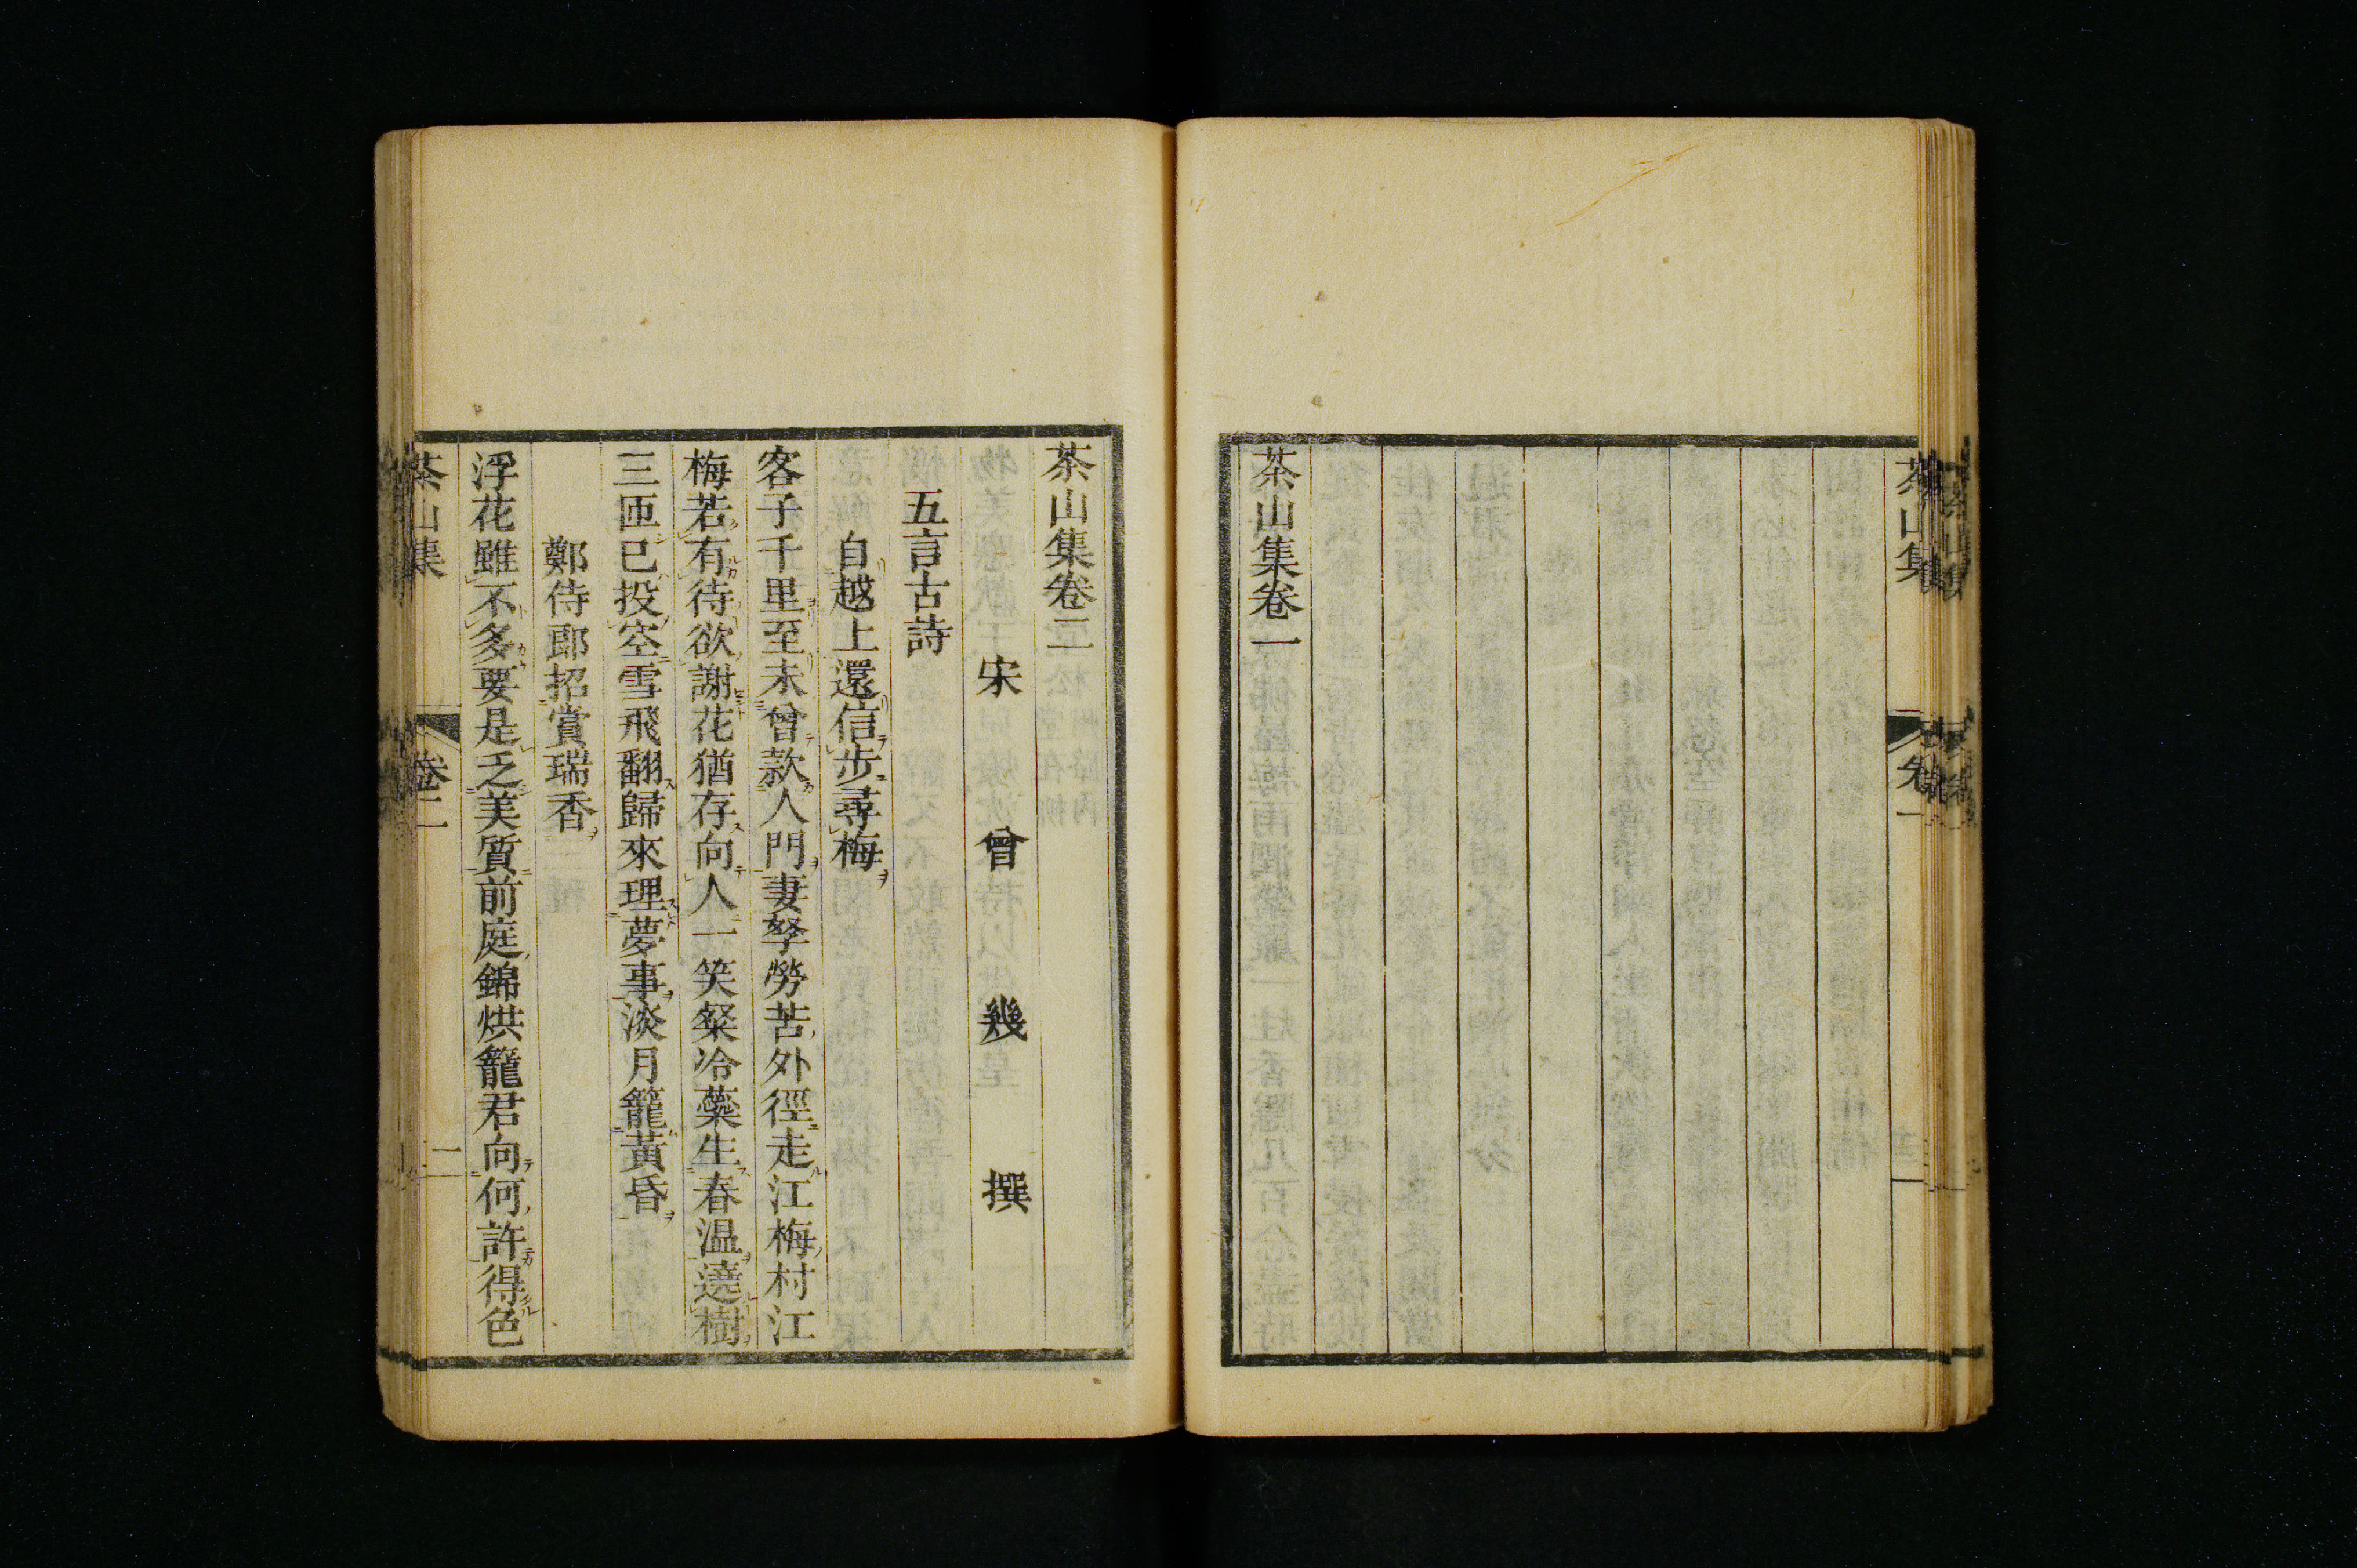 茶山集
卷一
茶山集卷一
茶山集卷二
宋 曾 幾 撰
五言古詩
自越上還信步尋梅
客子千里至未曾款人門妻孥勞苦外徑走江梅村江
梅若有待欲謝花猶存向人一笑粲冷蘂生春温遶樹
三匝已投空雪飛翻歸來理夢事淡月籠黃昏
鄭侍郎招賞瑞香
浮花雖不多要是乏美質前庭錦烘籠君向何許得色
茶山集
卷二
一